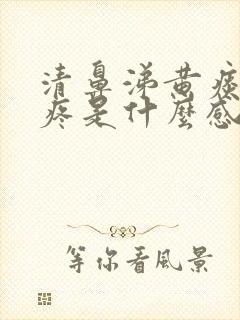 清鼻涕黄痰
疼是什麼感
等你看風景